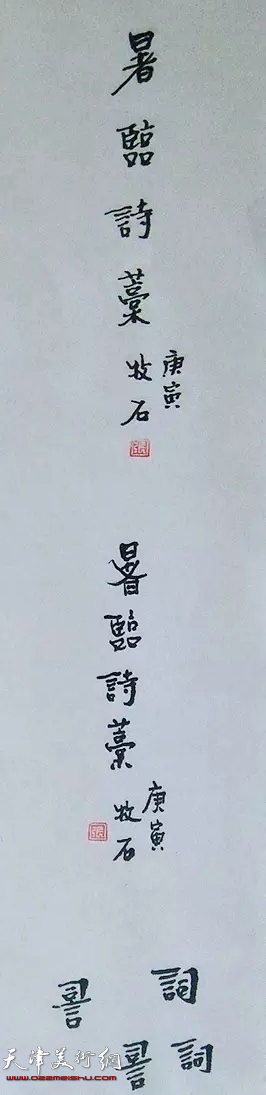 暑臨詩藁
庚寅
牧石
暑臨詩藁
庚寅
牧石
詞
詞
天津美術網
www.022meishu.com